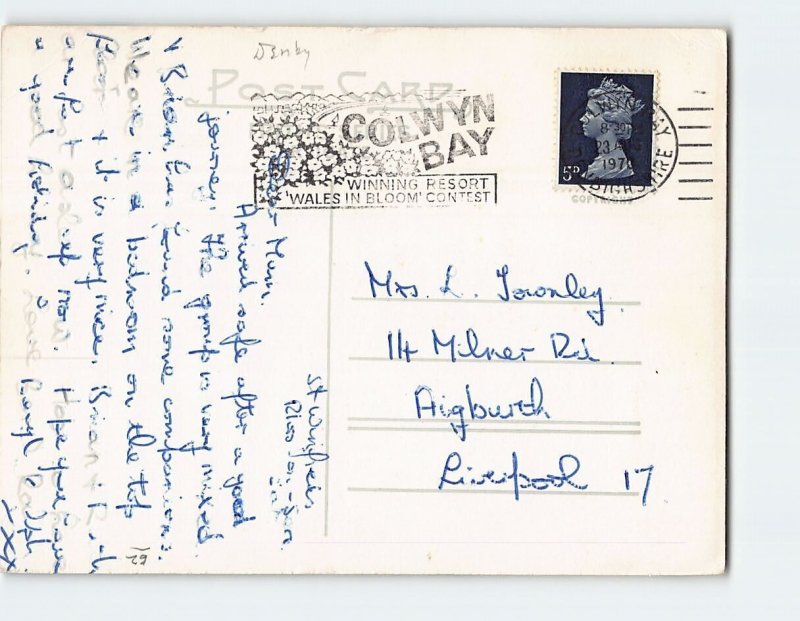 Denby
POST CARD
COLWYN
BAY
WINNING RESORT
'WALES IN BLOOM' CONTEST
COLWYN BAY
23 AUG
197
DENBIGHSHIRE
5D
COPYRIGHT
Mrs. L. Townley
14 Milner Rd.
Aigburth
Liverpool 17
St Winifreds
Rhos-on-Sea
Dear Mum.
Arrived safe after a good
journey. The group is very mixed
& Brian has found some companions.
We are in a bedroom on the top
floor & it is very nice. Brian &
are just asleep now. Hope you have
a good holiday. love Beryl & Ralph.
xxx